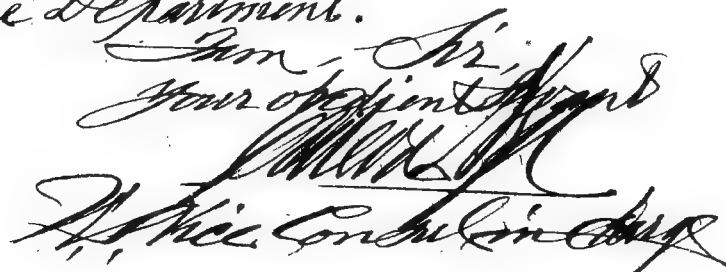 e Department.
I am, Sir,
Your obedient Servant
U.S. Vice Consul in charge